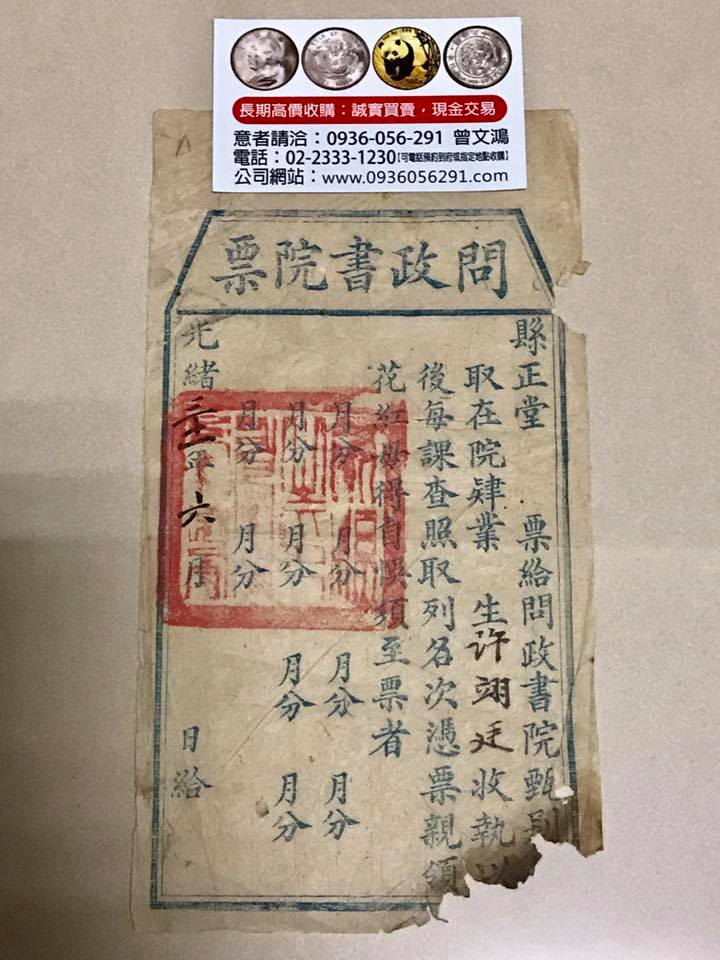 長期高價收購：誠實買賣，現金交易
意者請洽：0936-056-291 曾文鴻
電話：02-2333-1230【可電話預約到府或指定地點收購】
公司網站：www.0936056291.com
問政書院票
縣正堂 票給問政書院甄別
取在院肄業 生許翊廷收執以
後每課查照取列名次憑票親領
花紅毋得自悞須至票者
月分 月分 月分 月分
月分 月分 月分 月分
月分 月分
光緒 年六月 日給